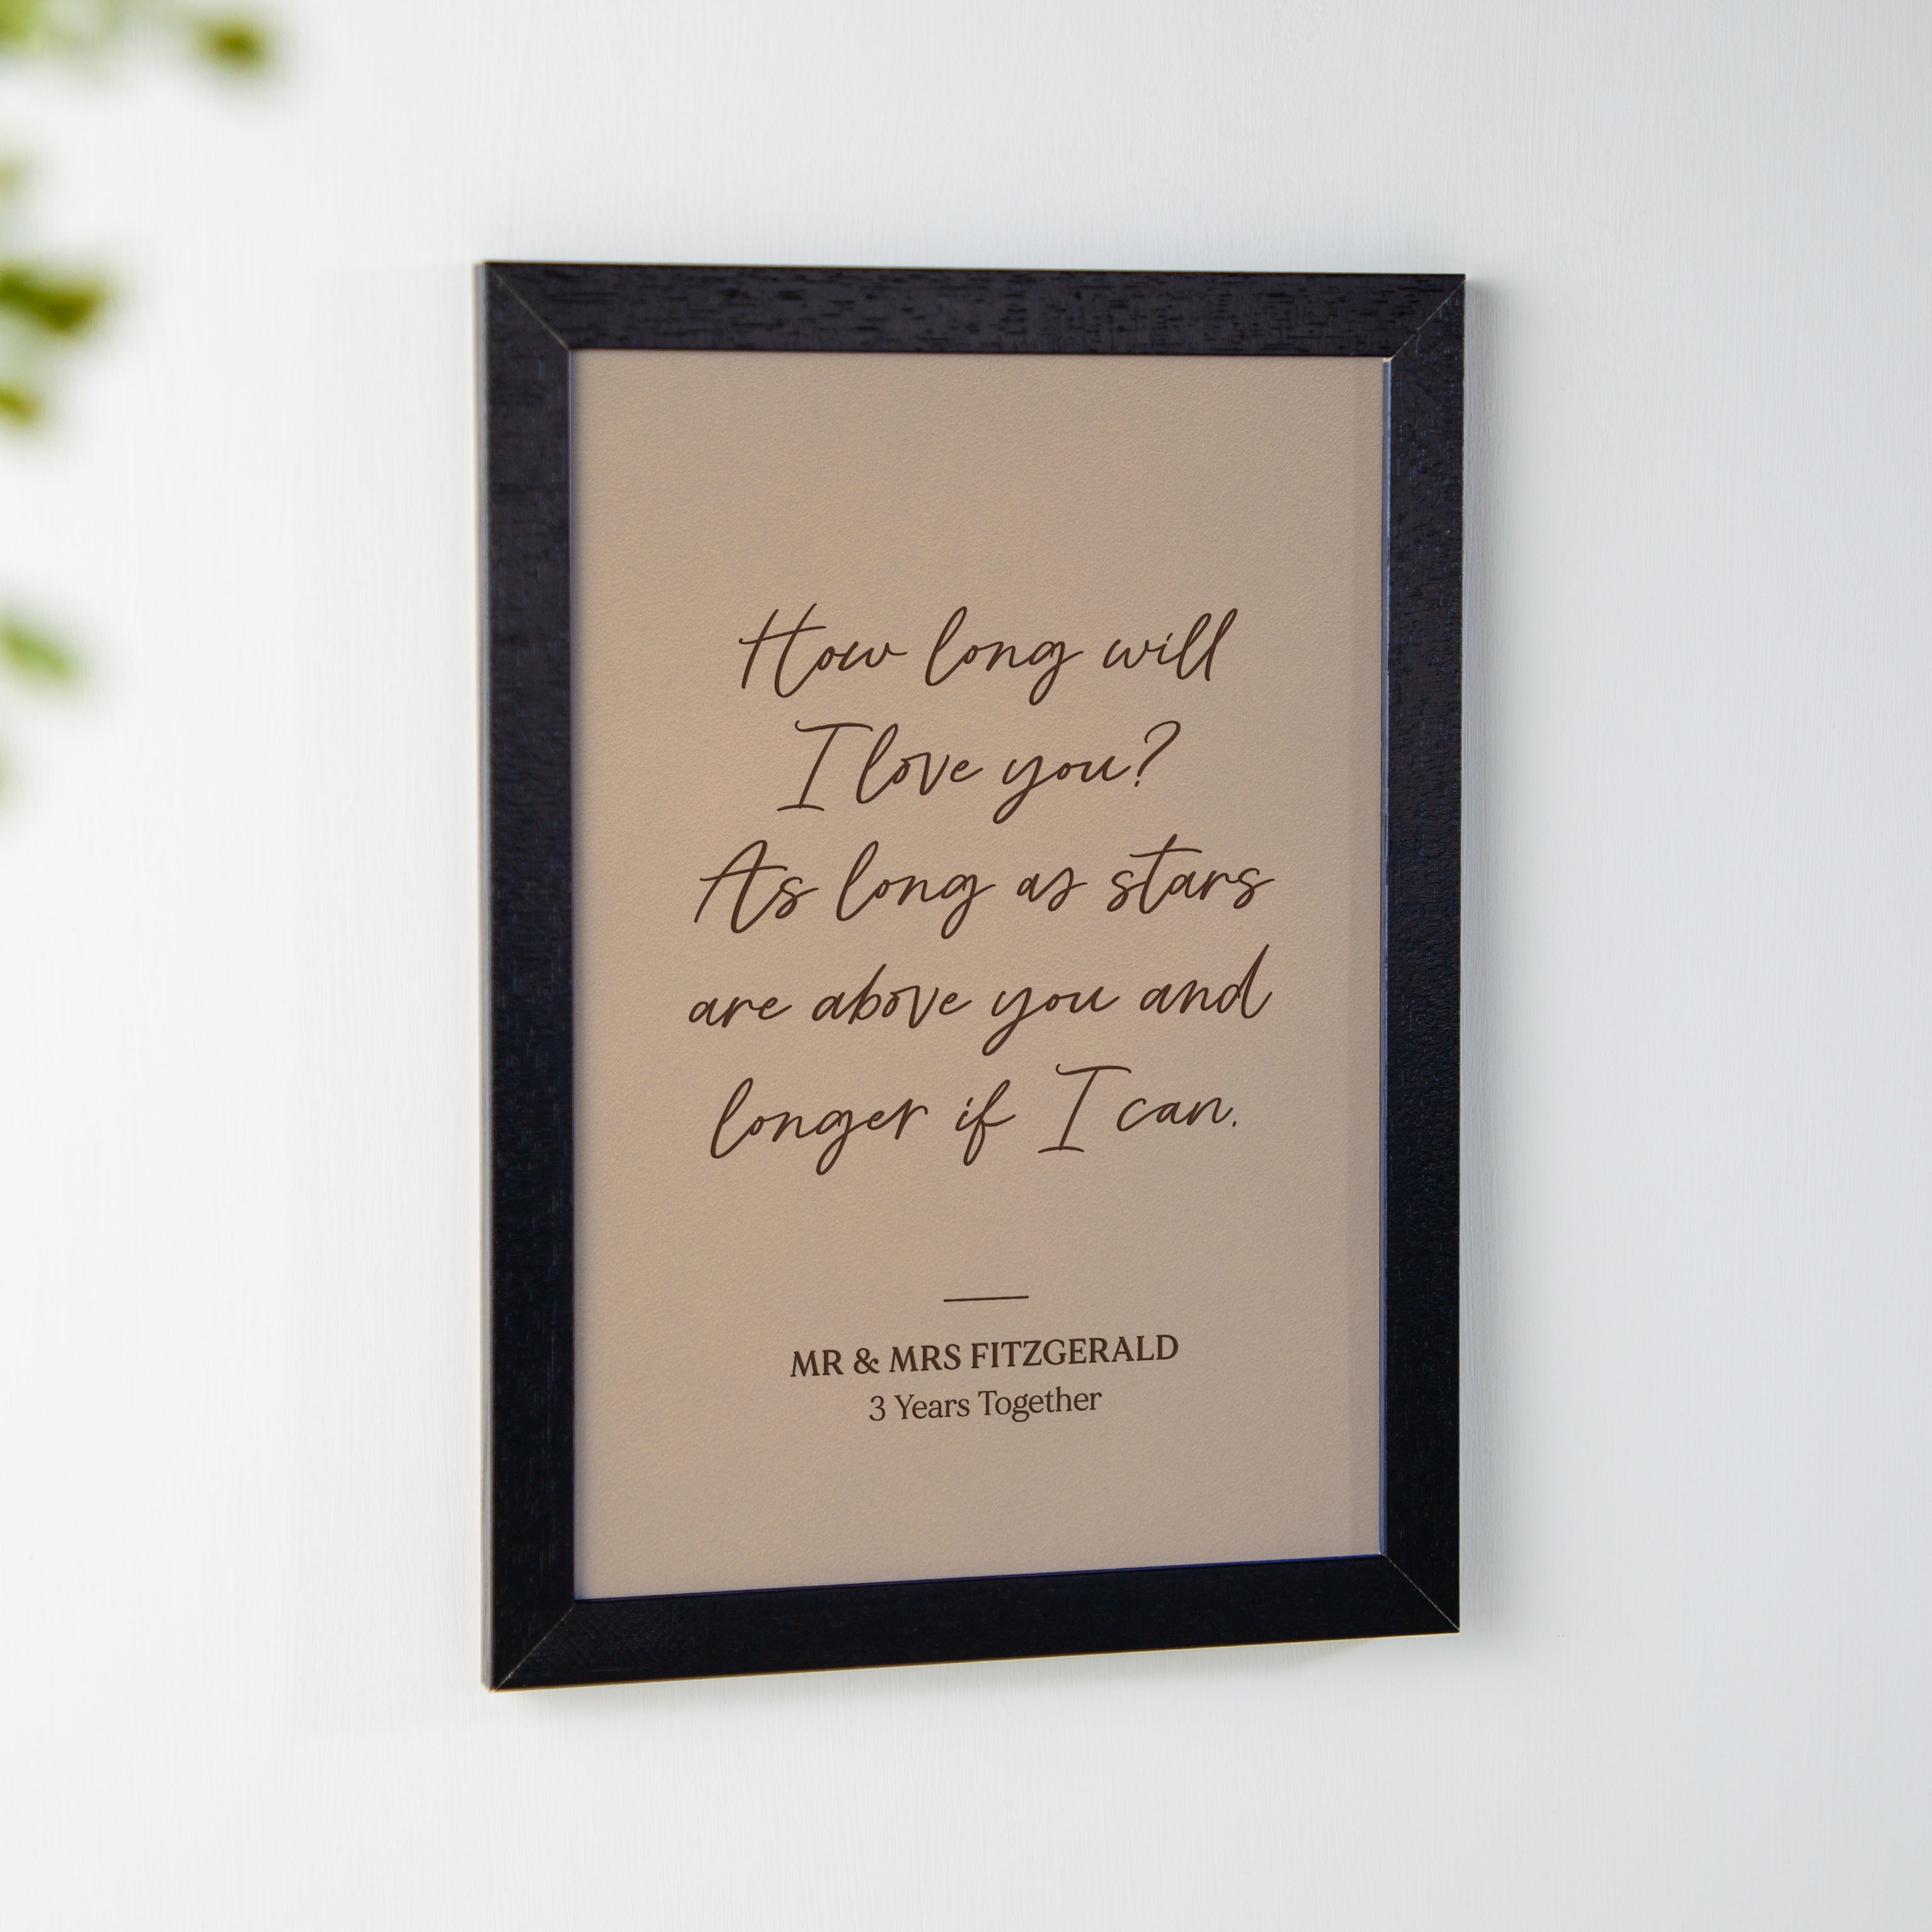 How long will
I love you?
As long as stars
are above you and
longer if I can.
MR & MRS FITZGERALD
3 Years Together